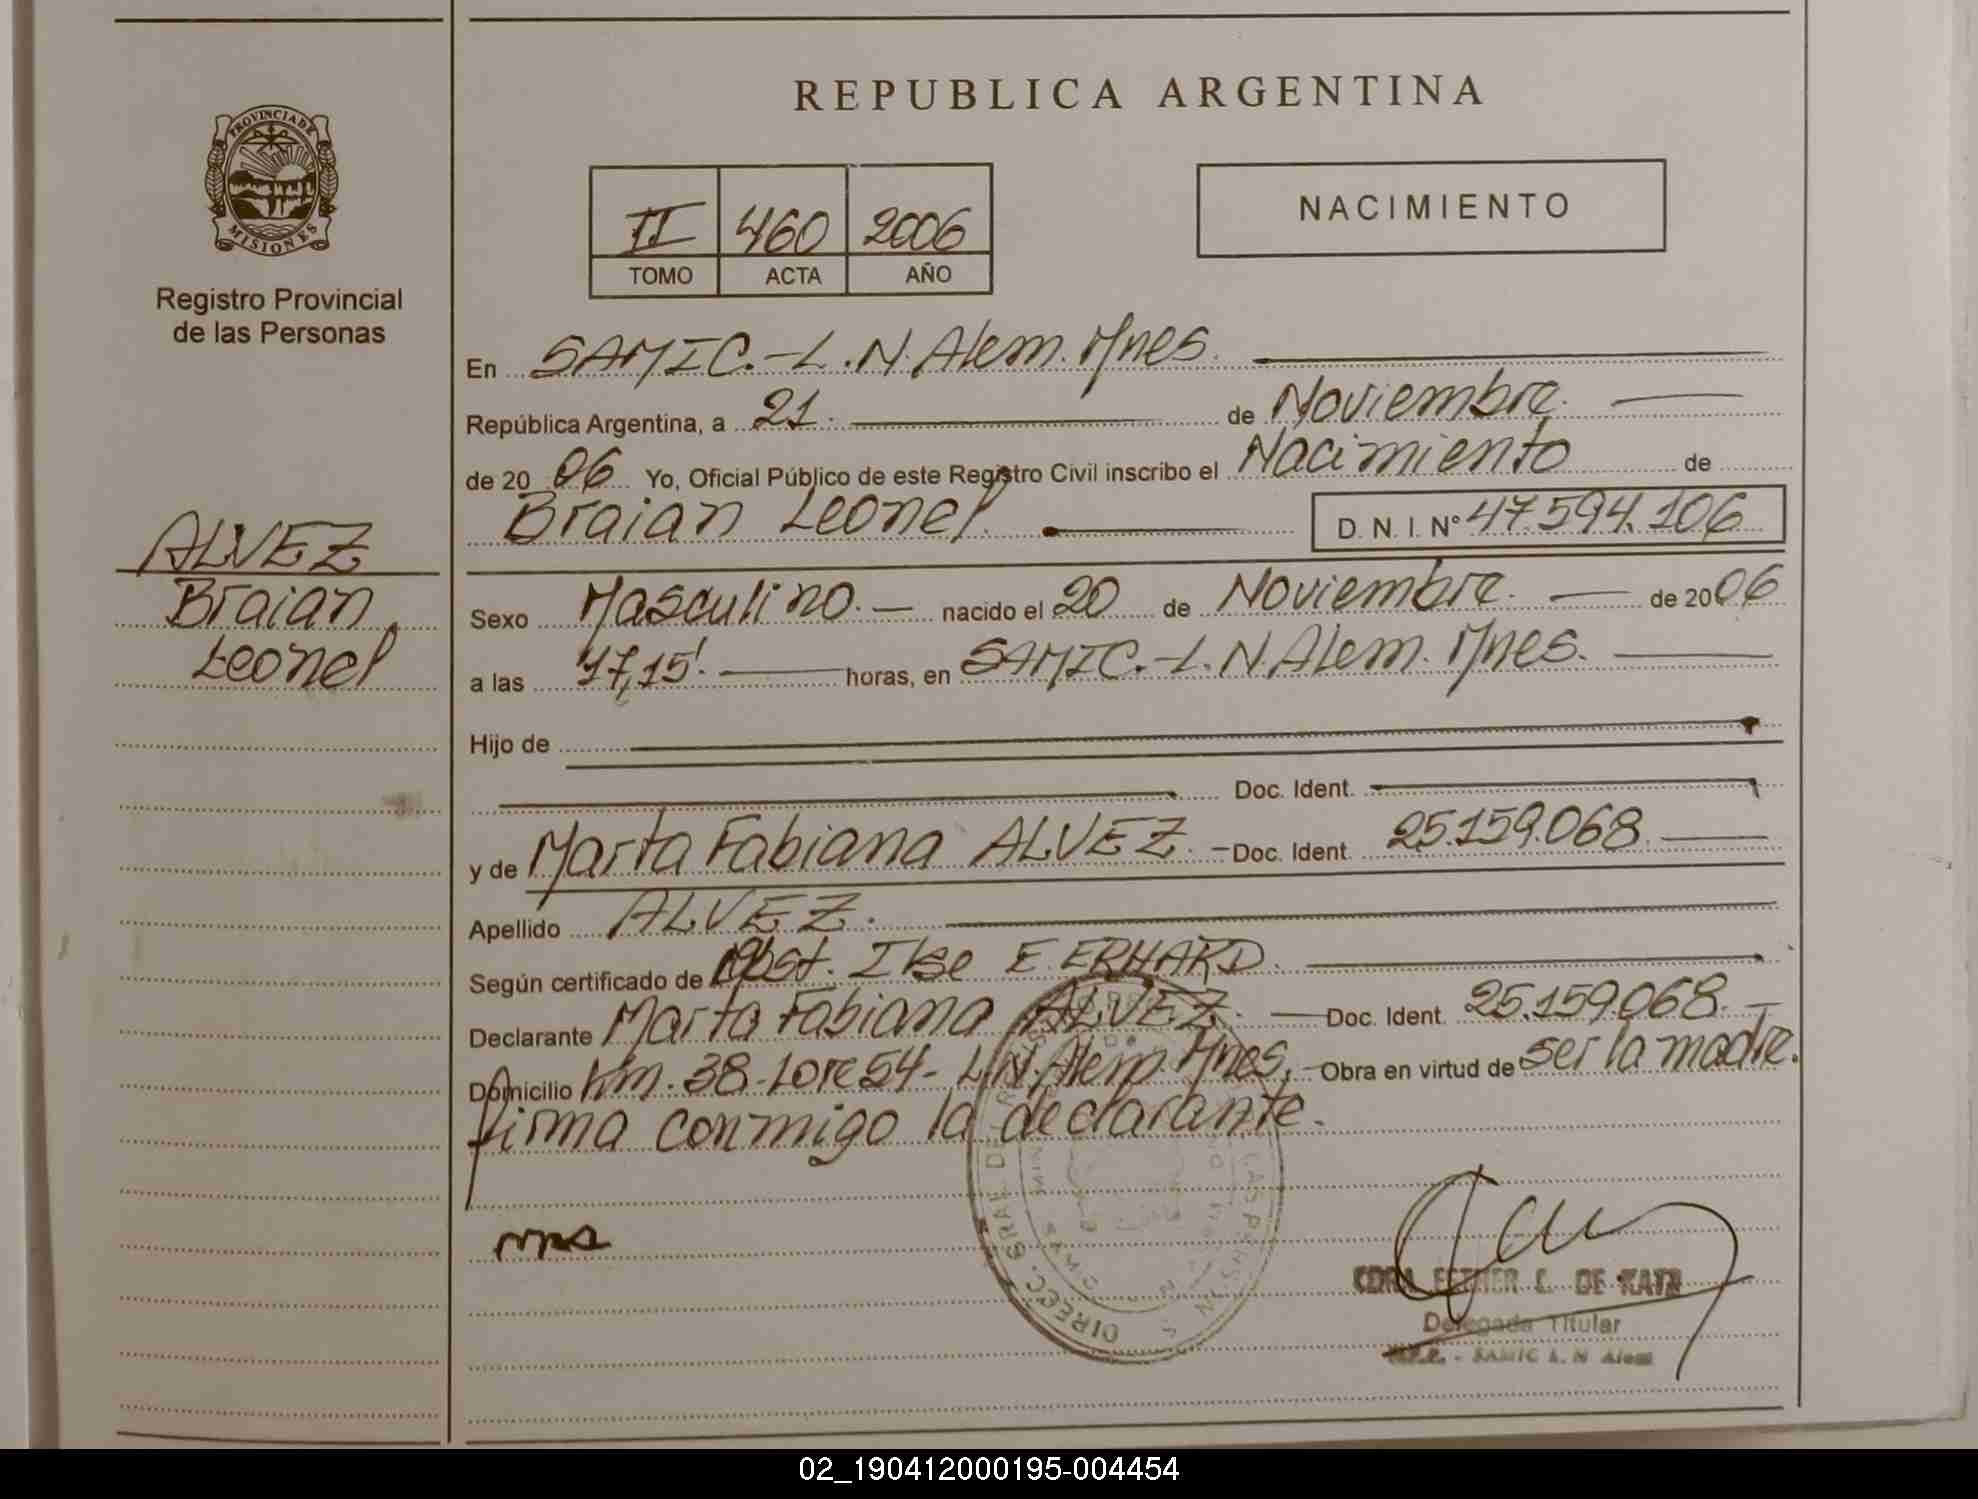 REPUBLICA ARGENTINA
PROVINCIA DE
MISIONES
Registro Provincial
de las Personas
II 460 2006
TOMO ACTA AÑO
NACIMIENTO
ALVEZ
Braian
Leonel
En SAMIC.-L.N.Alem. Mnes.
República Argentina, a 21. de Noviembre.
de 20 06 Yo, Oficial Público de este Registro Civil inscribo el Nacimiento de
Braian Leonel. D. N. I. Nº 47.594.106
Sexo Masculino.- nacido el 20 de Noviembre. de 2006
a las 17,15'. horas, en SAMIC.-L.N.Alem. Mnes.
Hijo de
Doc. Ident.
y de Marta Fabiana ALVEZ. - Doc. Ident. 25.159.068.
Apellido ALVEZ.
Según certificado de Obst. Ilse E. ERHARD.
Declarante Marta Fabiana ALVEZ. Doc. Ident. 25.159.068.-
Domicilio Km. 38-Lote 54- L.N.Alem Mnes, - Obra en virtud de ser la madre.
firma conmigo la declarante.
DIRECC. GRAL. DE
ESTHER DE
Delegada Titular
SAMIC L. N Alem
02_190412000195-004454